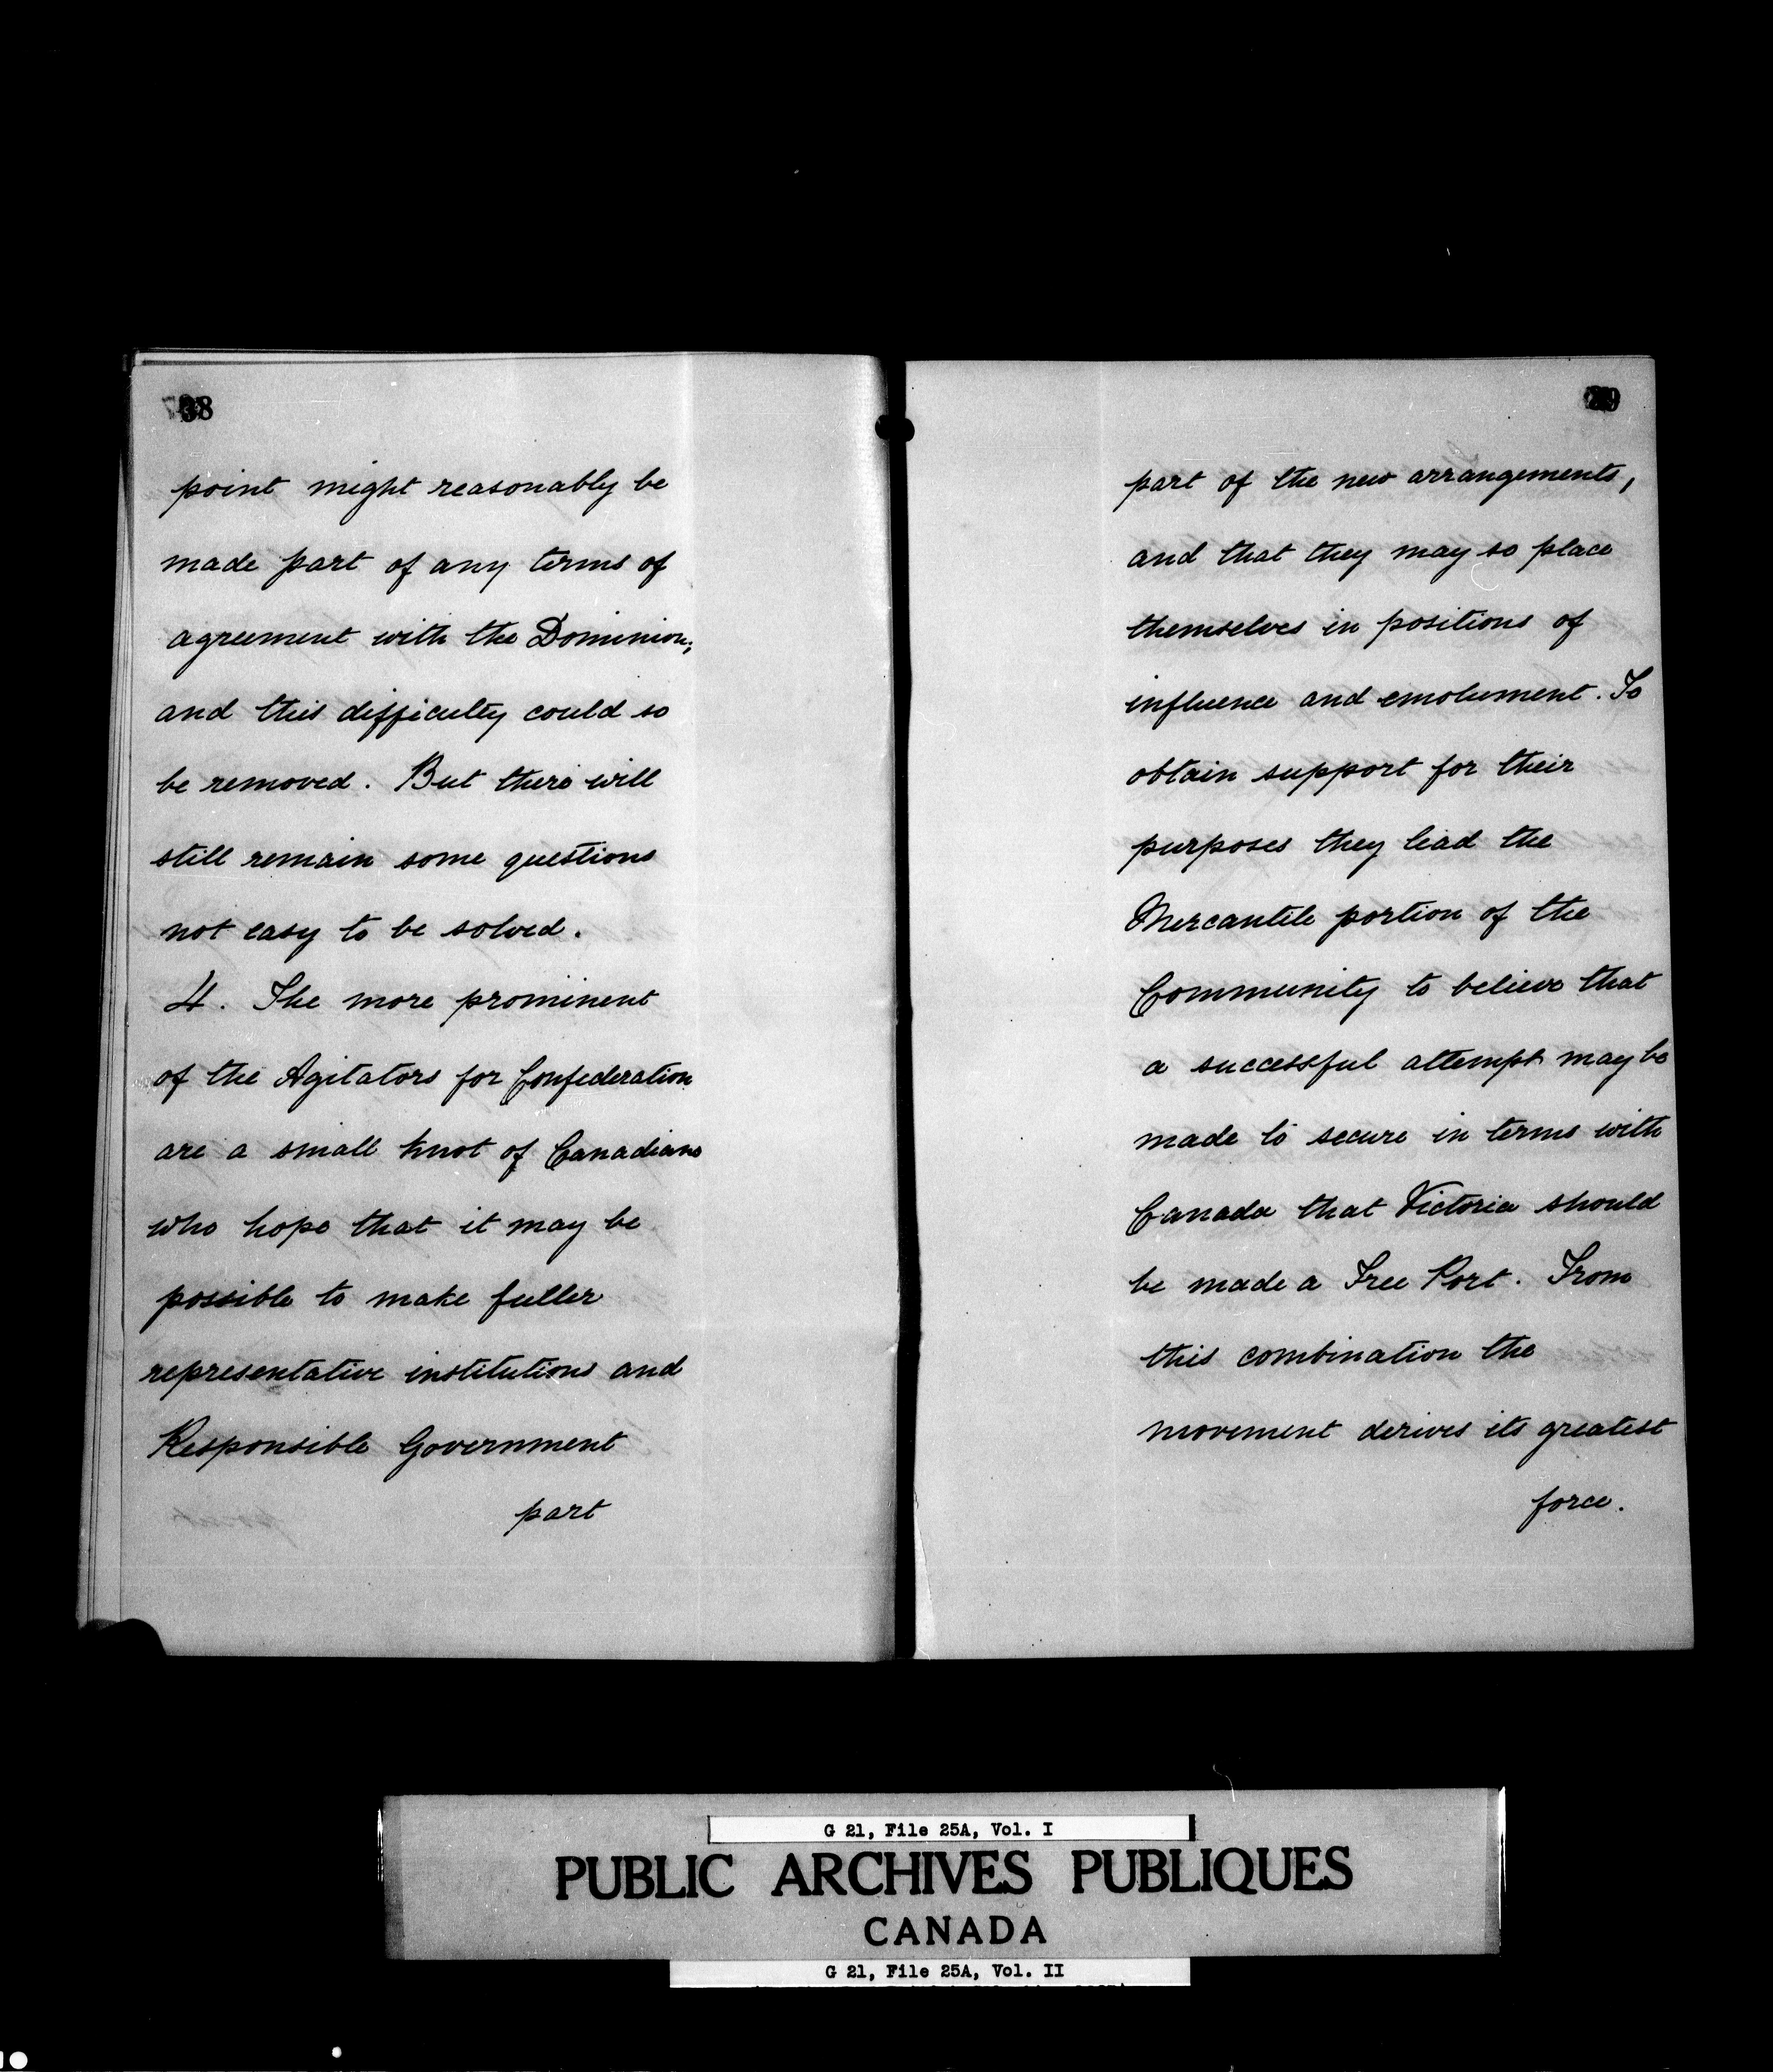 38
point might reasonably be
made part of any terms of
agreement with the Dominion;
and this difficulty could so
be removed. But there will
still remain some questions
not easy to be solved.
4. The more prominent
of the Agitators for Confederation
are a small knot of Canadians
who hope that it may be
possible to make fuller
representative institutions and
Responsible Government
part
part of the new arrangements,
and that they may so place
themselves in positions of
influence and emolument. To
obtain support for their
purposes they lead the
Mercantile portion of the
Community to believe that
a successful attempt may be
made to secure in terms with
Canada that Victoria should
be made a Free Port. From
this combination the
movement derives its greatest
force.
G 21, File 25A, Vol. I
PUBLIC ARCHIVES PUBLIQUES
CANADA
G 21, File 25A, Vol. II